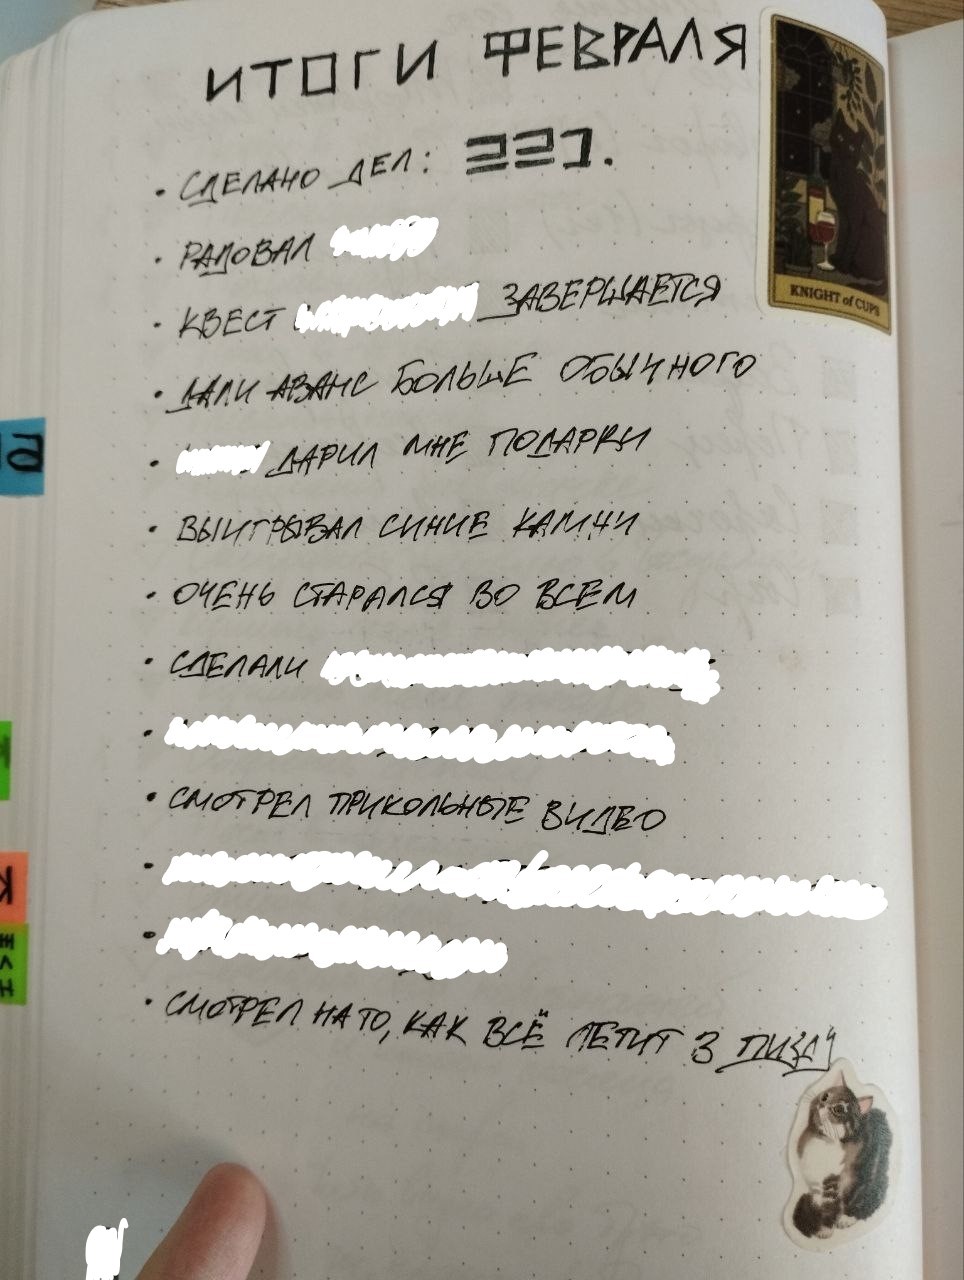 ИТОГИ ФЕВРАЛЯ
• СДЕЛАНО ДЕЛ:
• РАДОВАЛ
• КВЕСТ ЗАВЕРШАЕТСЯ
• ДАЛИ АВАНС БОЛЬШЕ ОБЫЧНОГО
• ДАРИЛ МНЕ ПОДАРКИ
• ВЫИГРЫВАЛ СИНИЕ КАМНИ
• ОЧЕНЬ СТАРАЛСЯ ВО ВСЕМ
• СДЕЛАЛИ
• СМОТРЕЛ ПРИКОЛЬНЫЕ ВИДЕО
• СМОТРЕЛ НА ТО, КАК ВСЁ ЛЕТИТ В ПИЗДУ
KNIGHT of CUPS